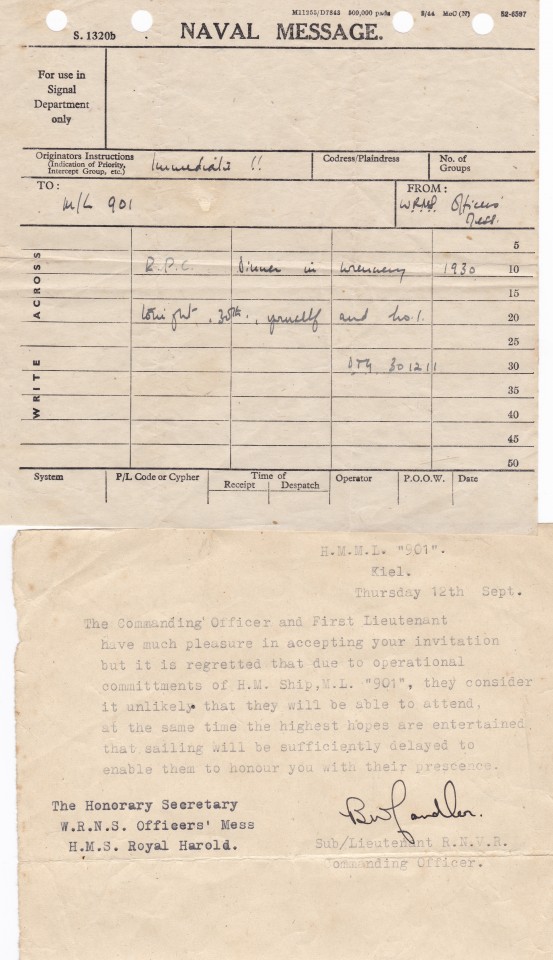 M11953/D7843 500,000 pads 9/44 McC (N) 52-6597
S. 1320b
NAVAL MESSAGE.
For use in
Signal
Department
only
Originators Instructions
(Indication of Priority,
Intercept Group, etc.)
Immediate !!
Codress/Plaindress
No. of
Groups
TO:
M/L 901
FROM:
W.R.N.S. Officers'
Mess.
WRITE ACROSS
5
R.P.C. Dinner in Wrennery 1930 10
15
tonight, 30th., yourself and No.1. 20
25
DTG 301211 30
35
40
45
50
System
P/L Code or Cypher
Time of
Receipt
Despatch
Operator
P.O.O.W.
Date
H.M.M.L. "901".
Kiel.
Thursday 12th Sept.
The Commanding Officer and First Lieutenant
have much pleasure in accepting your invitation
but it is regretted that due to operational
committments of H.M. Ship,M.L. "901", they consider
it unlikely that they will be able to attend,
at the same time the highest hopes are entertained
that sailing will be sufficiently delayed to
enable them to honour you with their prescence.
The Honorary Secretary
W.R.N.S. Officers' Mess
H.M.S. Royal Harold.
Sub/Lieutenant R.N.V.R.
Commanding Officer.